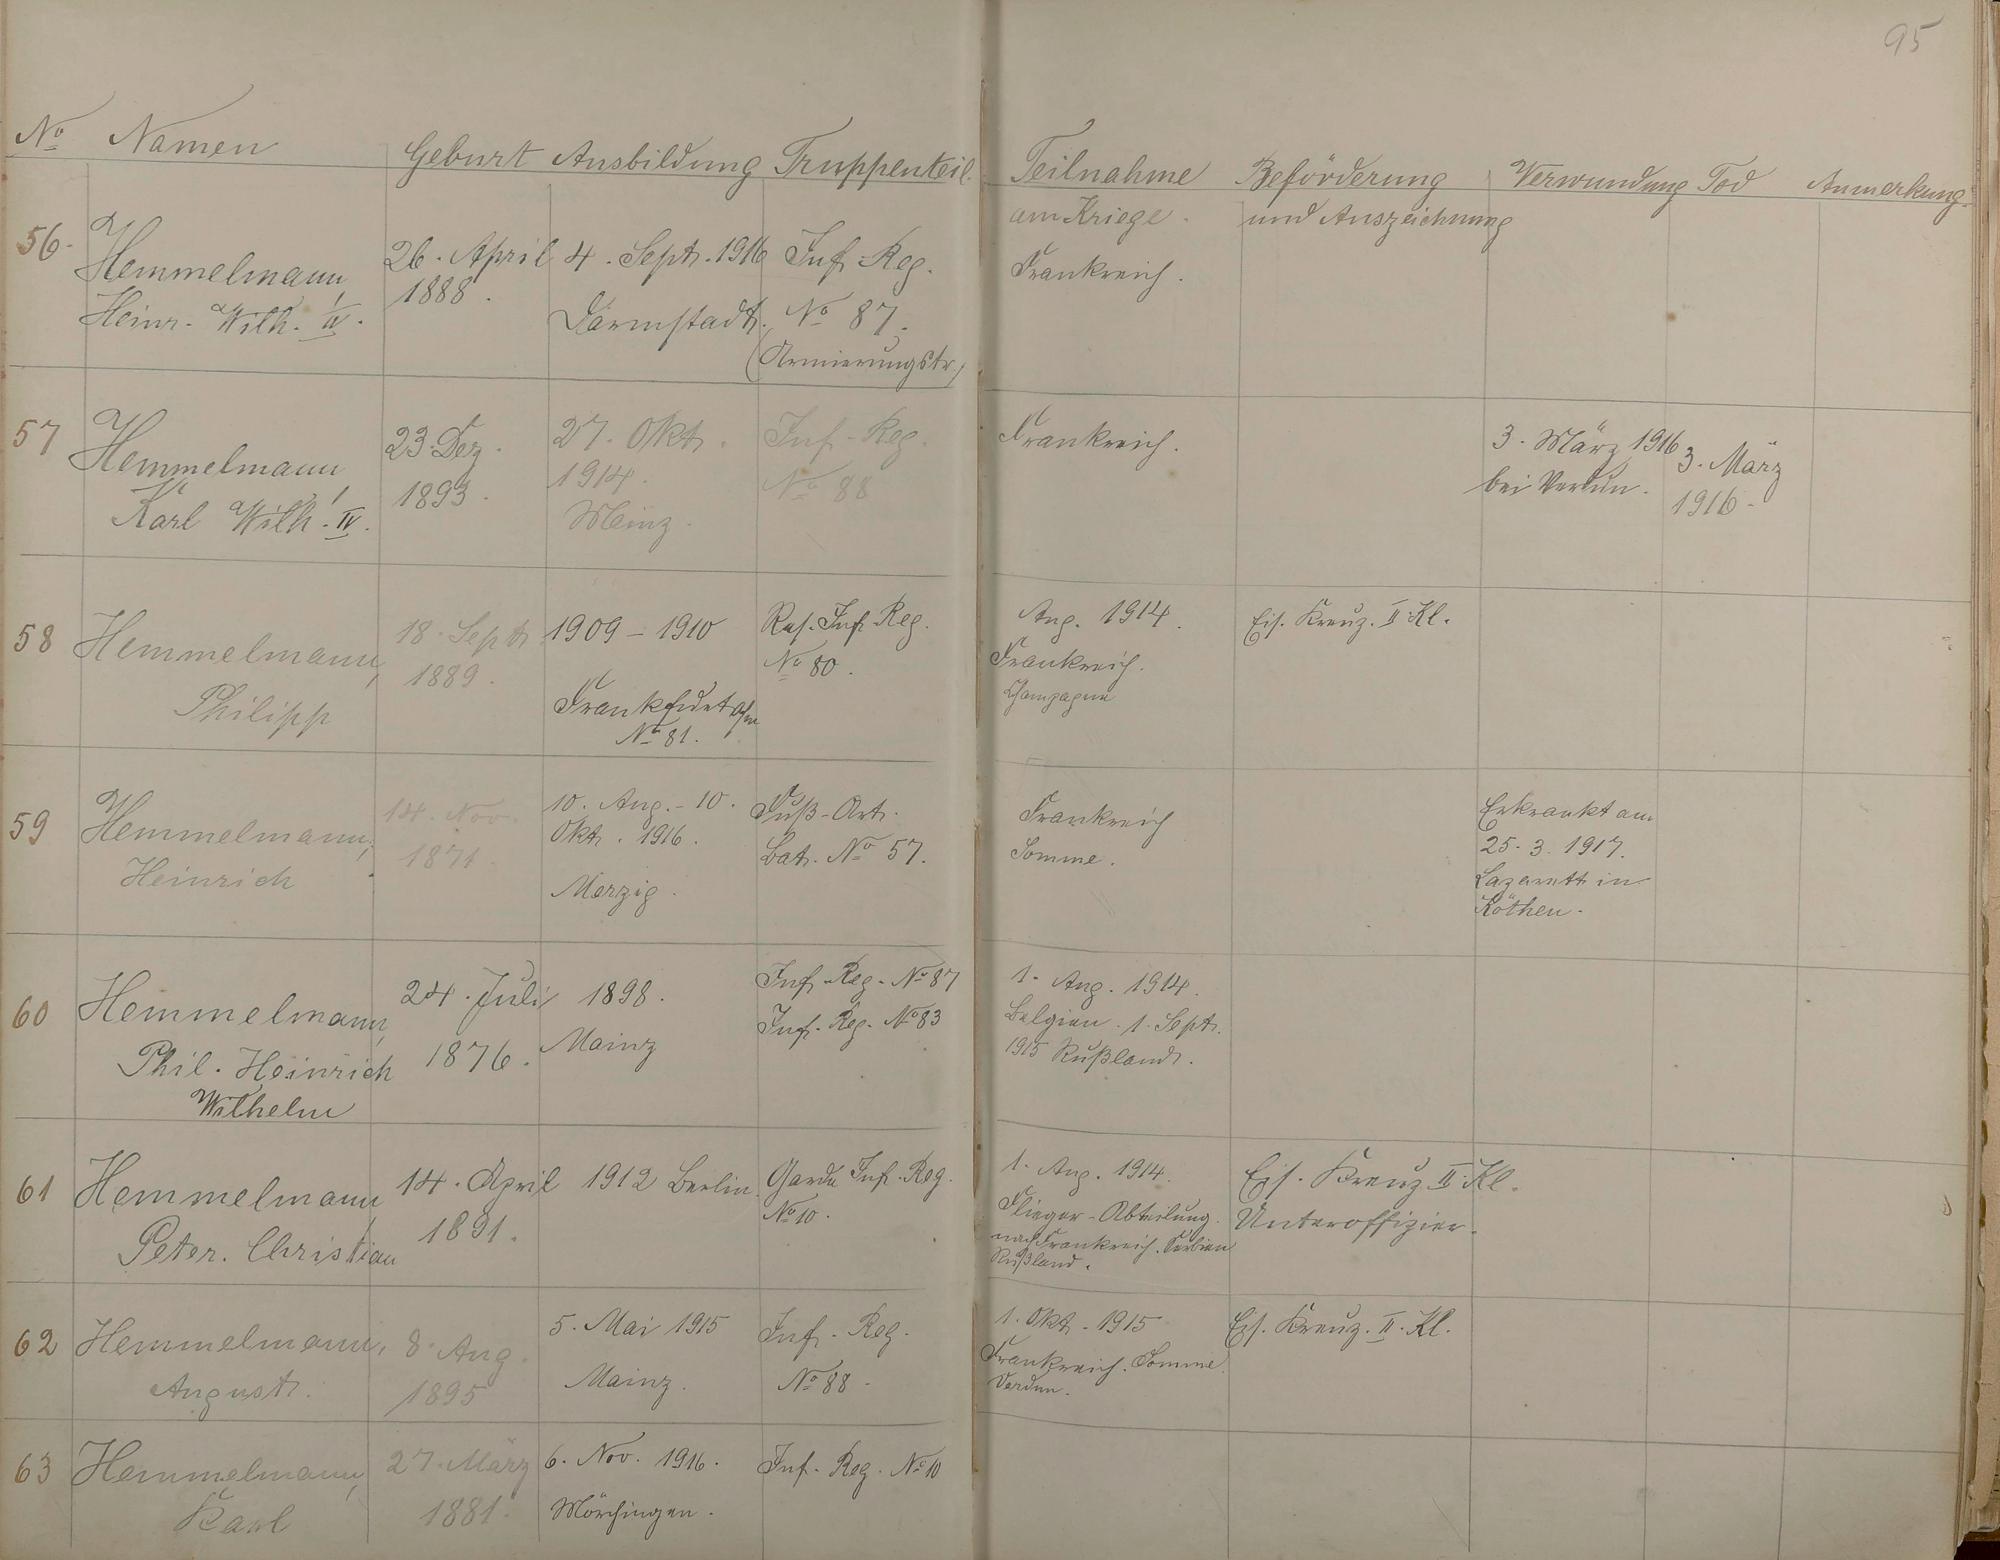 95
No Namen Geburt Ausbildung Truppenteil. Teilnahme am Kriege. Beförderung und Auszeichnung Verwundung Tod Anmerkung.
56.
Hemmelmann,
Heinr. Wilh. IV.
26. April
1888.
4. Sept. 1916
Darmstadt.
Inf. Reg.
No 87.
(Armierungstr.)
Frankreich.
57
Hemmelmann,
Karl Wilh. IV.
23. Dez.
1893.
27. Okt.
1914.
Mainz.
Inf.-Reg.
No 88
Frankreich.
3. März 1916
bei Verdun.
3. März
1916.
58
Hemmelmann,
Philipp
18. Sept.
1889.
1909 - 1910
Frankfurt
No 81.
Res. Inf. Reg.
No 80.
Aug. 1914.
Frankreich.
Champagne
Eis. Kreuz. II Kl.
59
Hemmelmann,
Heinrich
14. Nov.
1871.
10. Aug. - 10.
Okt. 1916.
Merzig.
Fuß-Art.
Bat. No 57.
Frankreich
Somme.
Erkrankt am
25. 3. 1917.
Lazarett in
Köthen.
60
Hemmelmann,
Phil. Heinrich
Wilhelm
24. Juli
1876.
1898.
Mainz
Inf. Reg. No 87
Inf. Reg. No 83
1. Aug. 1914.
Belgien. 1. Sept.
1915 Rußland.
61
Hemmelmann
Peter. Christian
14. April
1891.
1912 Berlin
Garde Inf. Reg.
No 10.
1. Aug. 1914.
Flieger-Abteilung.
nach Frankreich. Serbien
Rußland.
Eis. Kreuz II. Kl.
Unteroffizier.
62
Hemmelmann,
August.
8. Aug.
1895
5. Mai 1915
Mainz.
Inf. Reg.
No 88.
1. Okt. 1915
Frankreich. Somme.
Verdun.
Eis. Kreuz. II. Kl.
63
Hemmelmann,
Karl
27. März
1881.
6. Nov. 1916.
Mörchingen.
Inf. Reg. No 10